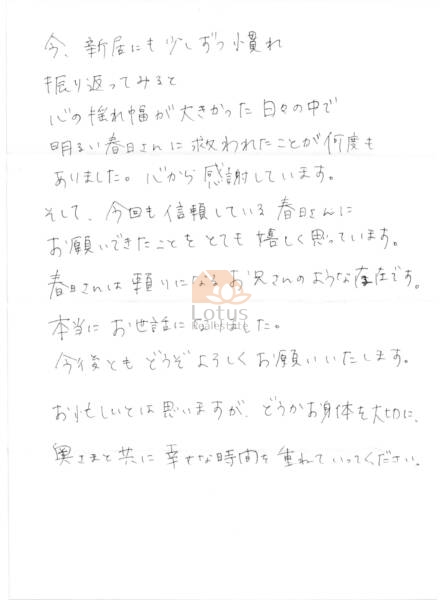 今、新居にも少しずつ慣れ
振り返ってみると
心の揺れ幅が大きかった日々の中で
明るい春日さんに救われたことが何度も
ありました。心から感謝しています。
そして、今回も信頼している春日さんに
お願いできたことをとても嬉しく思っています。
春日さんは頼りになるお兄さんのような存在です。
Lotus
Realestate
本当にお世話になりました。
今後ともどうぞよろしくお願いいたします。
お忙しいとは思いますが、どうかお身体を大切に、
奥さまと共に幸せな時間を重ねていってください。